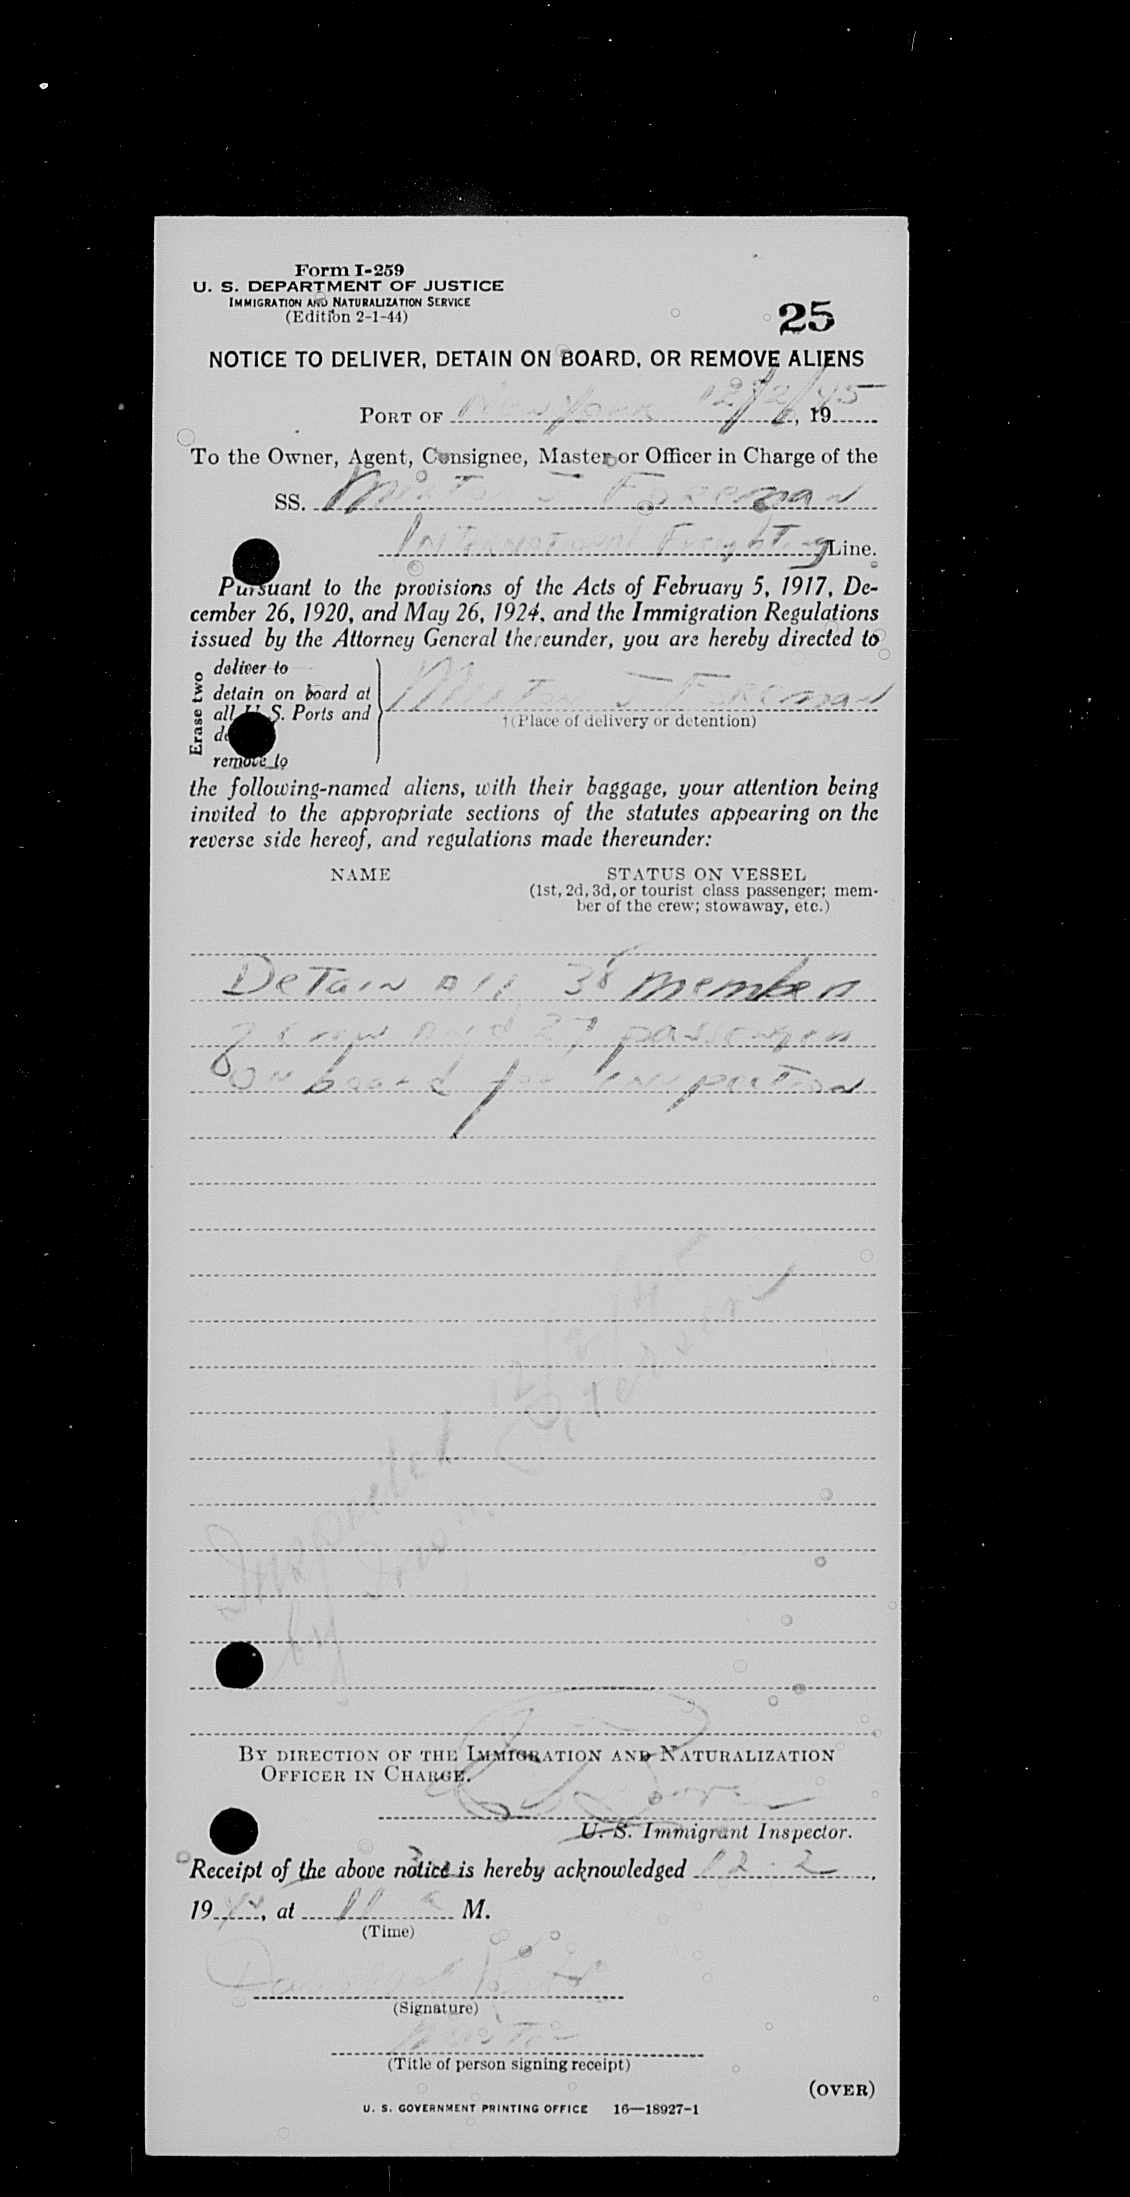 Form I-259
U. S. DEPARTMENT OF JUSTICE
IMMIGRATION AND NATURALIZATION SERVICE
(Edition 2-1-44)
25
NOTICE TO DELIVER, DETAIN ON BOARD, OR REMOVE ALIENS
PORT OF New York 12/2/45, 19
To the Owner, Agent, Consignee, Master or Officer in Charge of the
SS. Milton J Foreman
International Freighting Line.
Pursuant to the provisions of the Acts of February 5, 1917, De-
cember 26, 1920, and May 26, 1924, and the Immigration Regulations
issued by the Attorney General thereunder, you are hereby directed to
Erase two
deliver to
detain on board at
all U. S. Ports and
remove to
Milton J Foreman
†(Place of delivery or detention)
the following-named aliens, with their baggage, your attention being
invited to the appropriate sections of the statutes appearing on the
reverse side hereof, and regulations made thereunder:
NAME
STATUS ON VESSEL
(1st, 2d, 3d, or tourist class passenger; mem-
ber of the crew; stowaway, etc.)
Detain all 38 members
of crew and 27 passengers
on board for inspection
Inspected 12/2/45
by
BY DIRECTION OF THE IMMIGRATION AND NATURALIZATION
OFFICER IN CHARGE.
U. S. Immigrant Inspector.
Receipt of the above notice is hereby acknowledged 12-2,
19, at 11 a M.
(Time)
(Signature)
Master
(Title of person signing receipt)
(OVER)
U. S. GOVERNMENT PRINTING OFFICE 16—18927-1